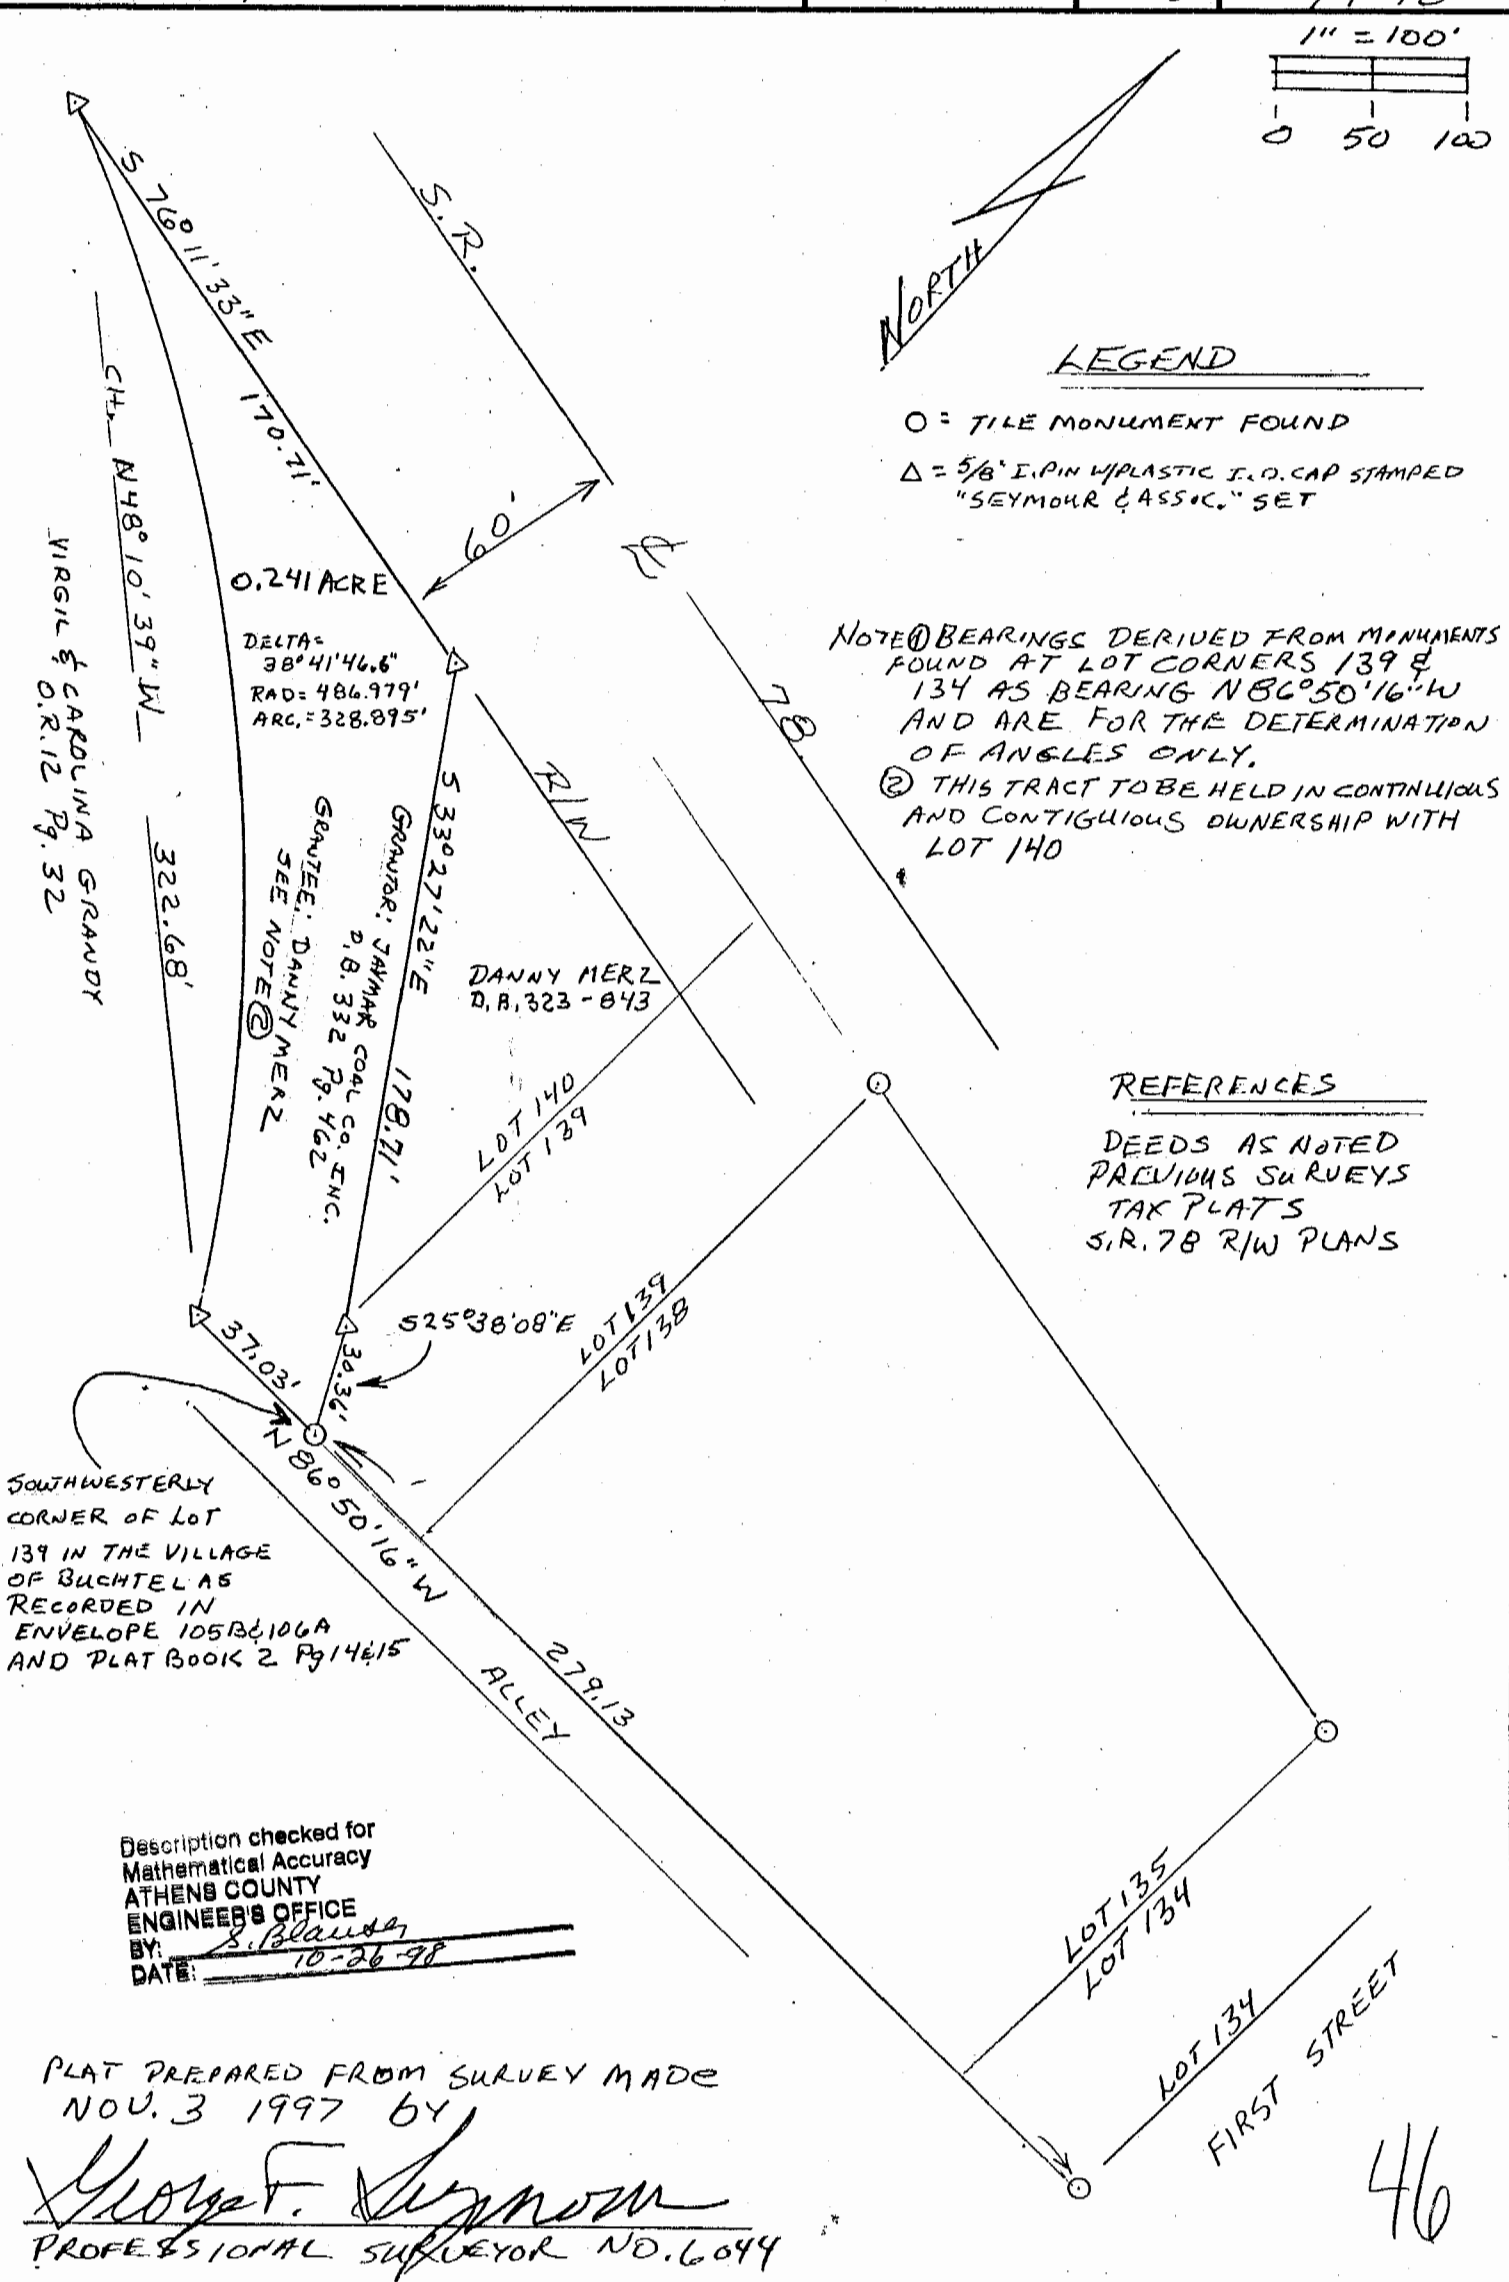 1" = 100'
0 50 100
NORTH
LEGEND
O = TILE MONUMENT FOUND
△ = 5/8" I.PIN W/PLASTIC I.D. CAP STAMPED
"SEYMOUR & ASSOC." SET
NOTE ① BEARINGS DERIVED FROM MONUMENTS
FOUND AT LOT CORNERS 139 &
134 AS BEARING N86°50'16"W
AND ARE FOR THE DETERMINATION
OF ANGLES ONLY.
② THIS TRACT TO BE HELD IN CONTINUIOUS
AND CONTIGUIOUS OWNERSHIP WITH
LOT 140
S 76° 11' 33" E
170.71'
S.R.
60'
℄
78
R/W
CH. N48° 10' 39" W
322.68'
VIRGIL & CAROLINA GRANDY
O.R. 12 Pg. 32
0.241 ACRE
DELTA=
38°41'46.6"
RAD= 486.979'
ARC.= 328.895'
S 33° 27' 22" E
178.71'
GRANTOR: JAYMAR COAL CO. INC.
D.B. 332 Pg. 462
GRANTEE: DANNY MERZ
SEE NOTE ②
DANNY MERZ
D.B. 323-843
LOT 140
LOT 139
LOT 139
LOT 138
REFERENCES
DEEDS AS NOTED
PREVIOUS SURVEYS
TAX PLATS
S.R. 78 R/W PLANS
37.03'
S25°38'08"E
30.36'
N 86° 50' 16" W
279.13
ALLEY
SOUTHWESTERLY
CORNER OF LOT
139 IN THE VILLAGE
OF BUCHTEL AS
RECORDED IN
ENVELOPE 105B&106A
AND PLAT BOOK 2 Pg 14&15
LOT 135
LOT 134
LOT 134
FIRST STREET
Description checked for
Mathematical Accuracy
ATHENS COUNTY
ENGINEER'S OFFICE
BY: S. Blauser
DATE: 10-26-98
PLAT PREPARED FROM SURVEY MADE
NOV. 3 1997 by
George F. Seymour
PROFESSIONAL SURVEYOR NO. 6044
46